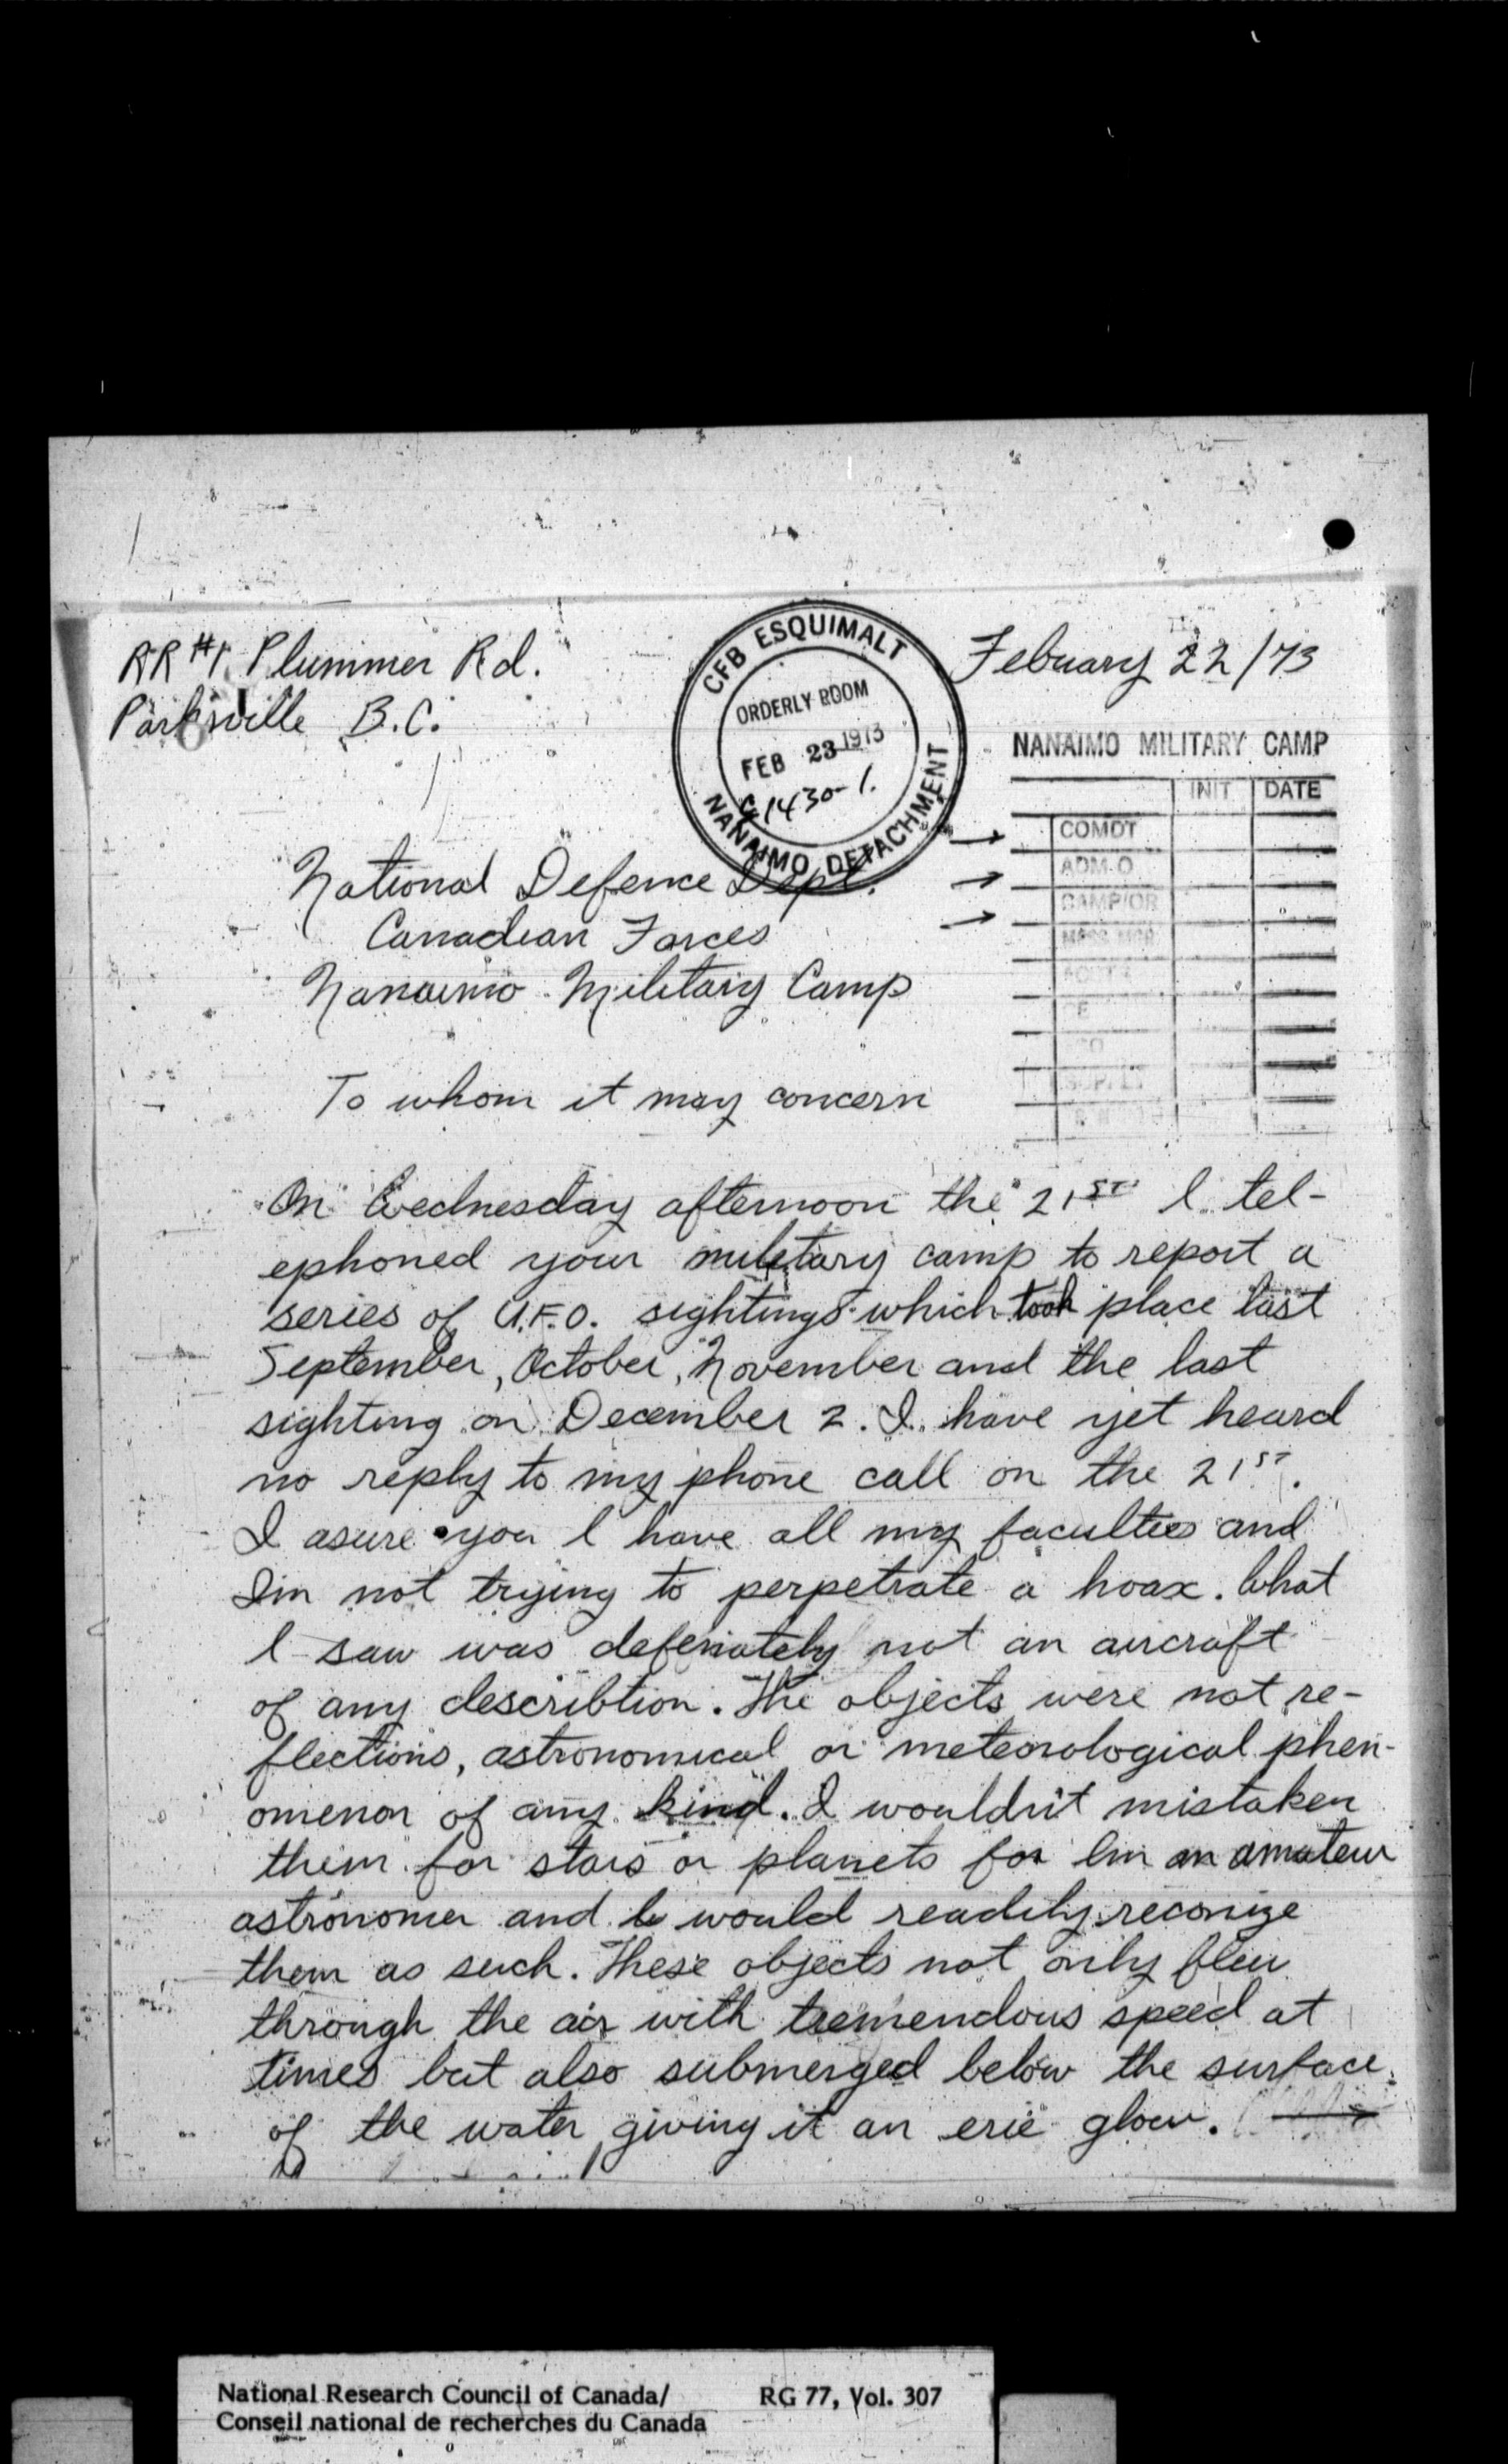 RR #1 Plummer Rd.
Parksville B.C.
CFB ESQUIMALT
ORDERLY ROOM
FEB 23 1973
1430-1.
NANAIMO DETACHMENT
Febuary 22/73
NANAIMO MILITARY CAMP
INIT DATE
COMDT
ADM-O
CAMP/OR
National Defence Dept.
Canadian Forces
Nanaimo Military Camp
To whom it may concern
On Wednesday afternoon the 21ST I tel-
ephoned your military camp to report a
series of U.F.O. sightings which took place last
September, October, November and the last
sighting on December 2. I have yet heard
no reply to my phone call on the 21ST.
I asure you I have all my faculties and
Im not trying to perpetrate a hoax. What
I saw was defenately not an aircraft
of any describtion. The objects were not re-
flections, astronomical or meteorological phen-
omenon of any kind. I wouldn't mistaken
them for stars or planets for Im an amateur
astronomer and I would readily reconize
them as such. These objects not only flew
through the air with tremendous speed at
times but also submerged below the surface
of the water giving it an erie glow.
National Research Council of Canada/ RG 77, Vol. 307
Conseil national de recherches du Canada